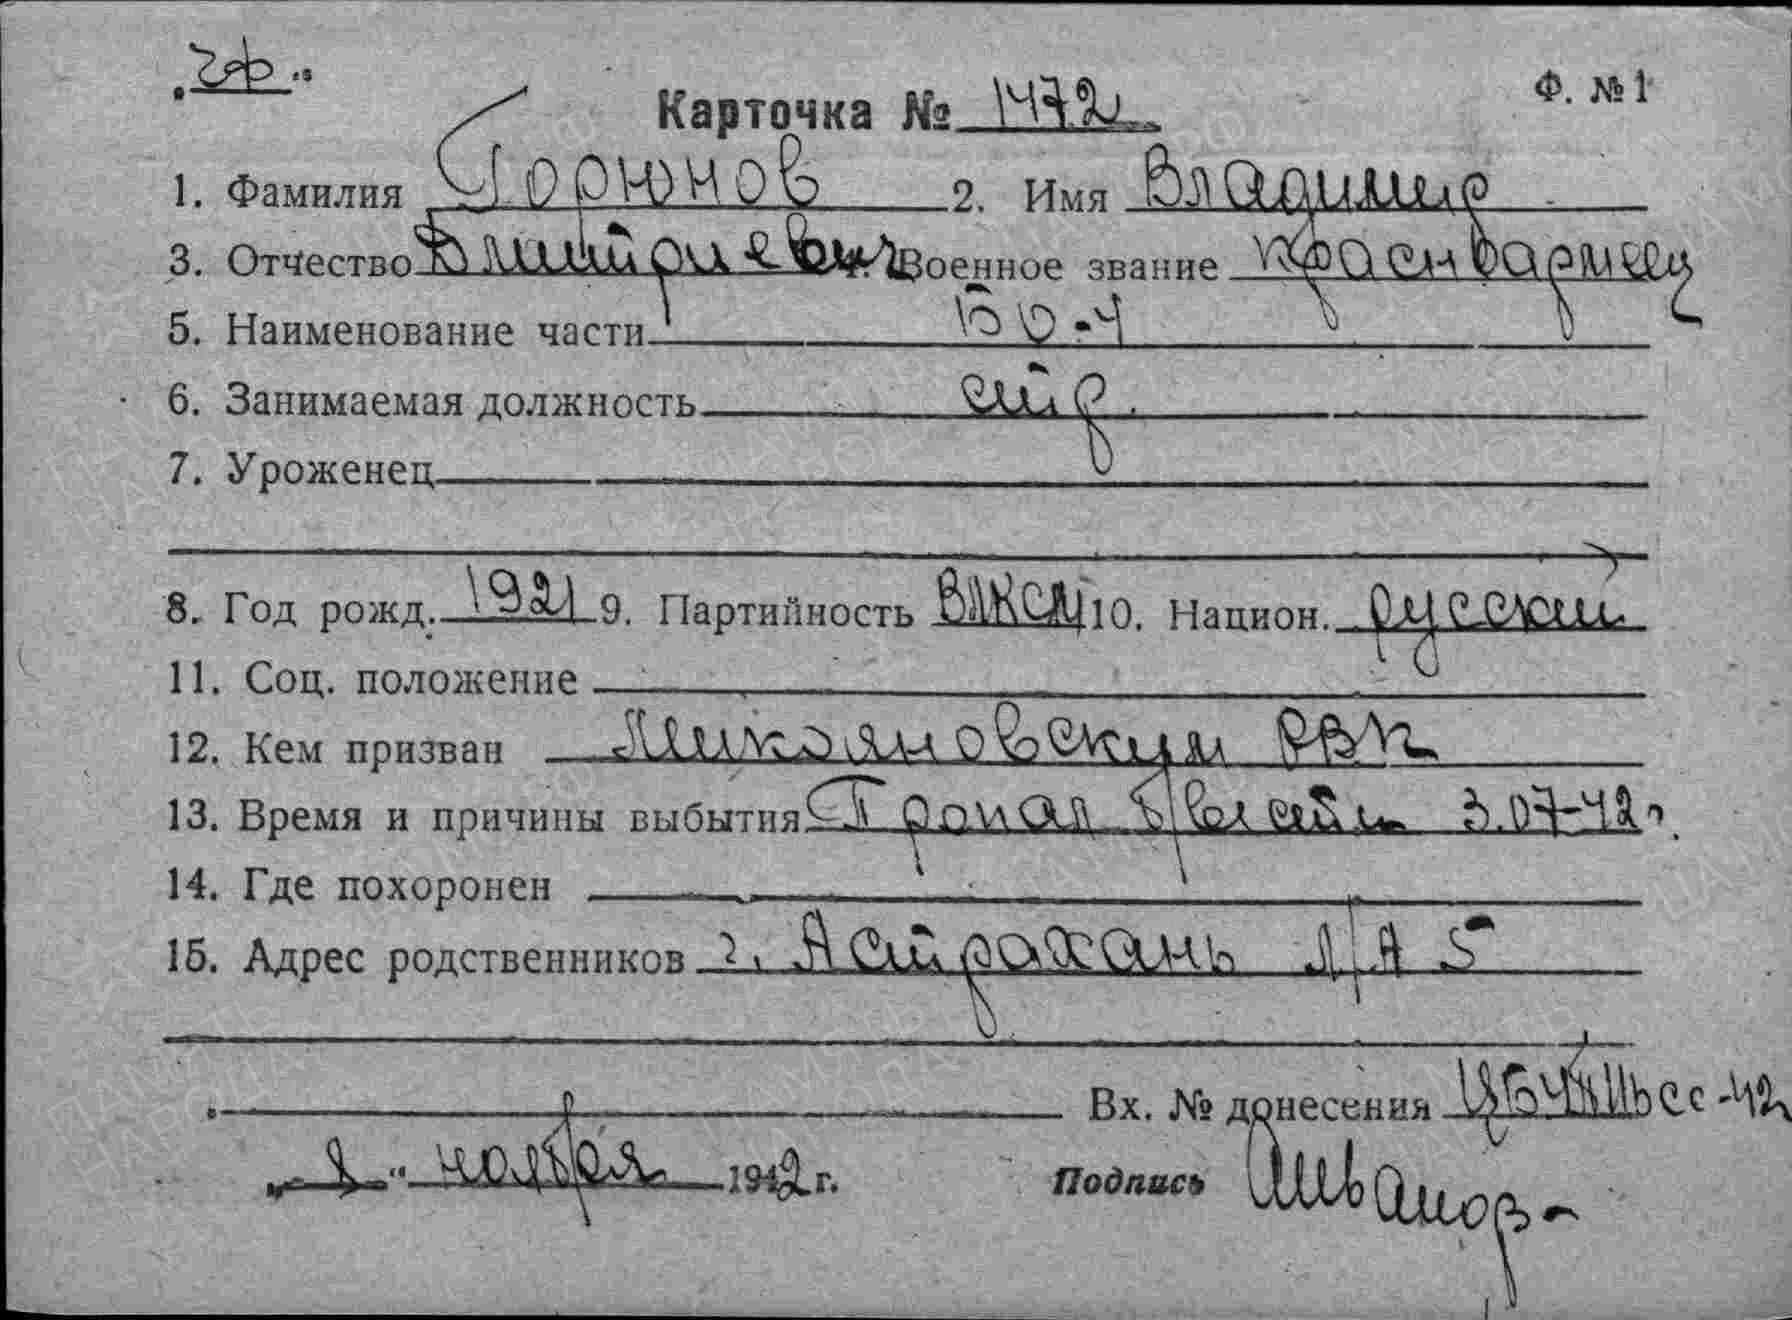 Ф. № 1
Карточка № 1472
1. Фамилия Горюнов 2. Имя Владимир
3. Отчество Дмитриевич Военное звание красноармеец
5. Наименование части
6. Занимаемая должность стр.
7. Уроженец
8. Год рожд. 1921 9. Партийность ВЛКСМ 10. Национ. русский
11. Соц. положение
12. Кем призван Микояновским РВК
13. Время и причины выбытия Пропал 3.07-42г.
14. Где похоронен
15. Адрес родственников г. Астрахань
Вх. № донесения
ноября 1942 г. Подпись